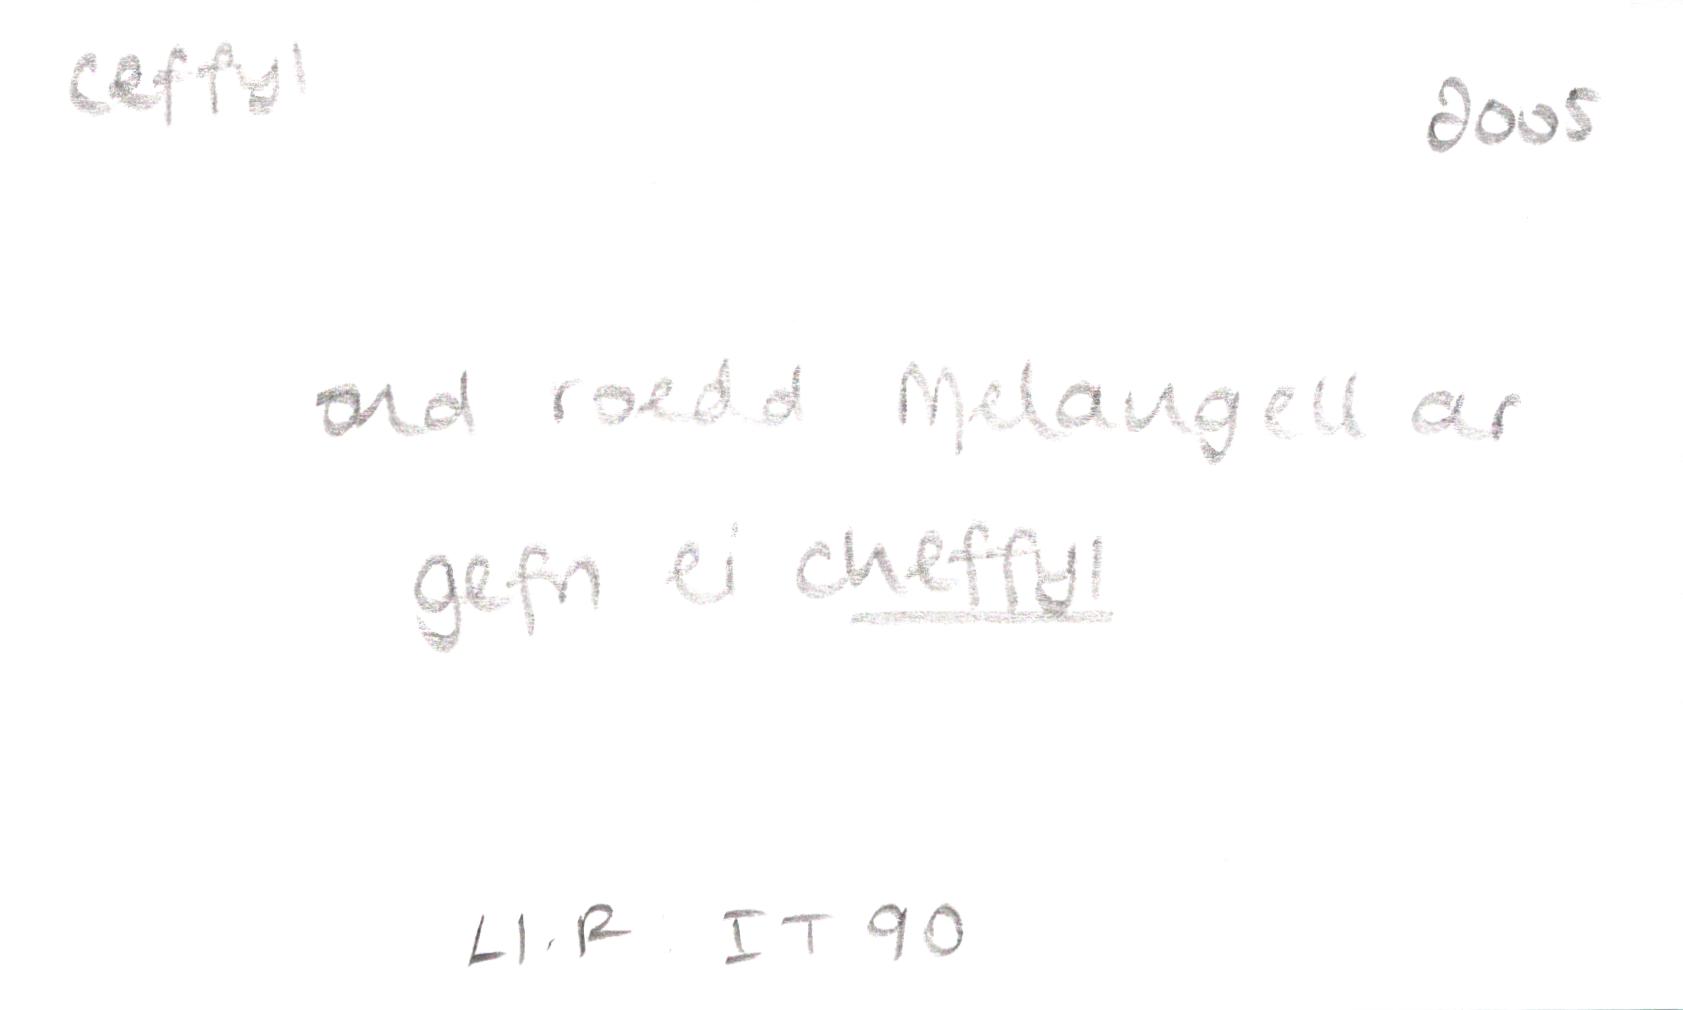 ceffyl
2005
ond roedd Melangell ar
gefn ei cheffyl
Ll.R. IT 90